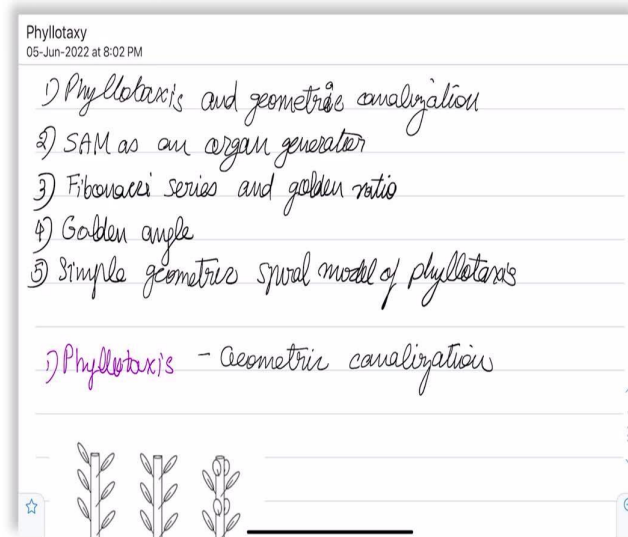 Phyllotaxy
05-Jun-2022 at 8:02 PM
1) Phyllotaxis and geometric canalization
2) SAM as an organ generator
3) Fibonacci series and golden ratio
4) Golden angle
5) Simple geometric spiral model of phyllotaxis
1) Phyllotaxis - Geometric canalization